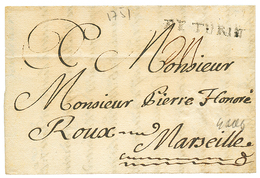 1751
DE TURIN
Monsieur
Monsieur Pierre Honoré
Roux
Marseille